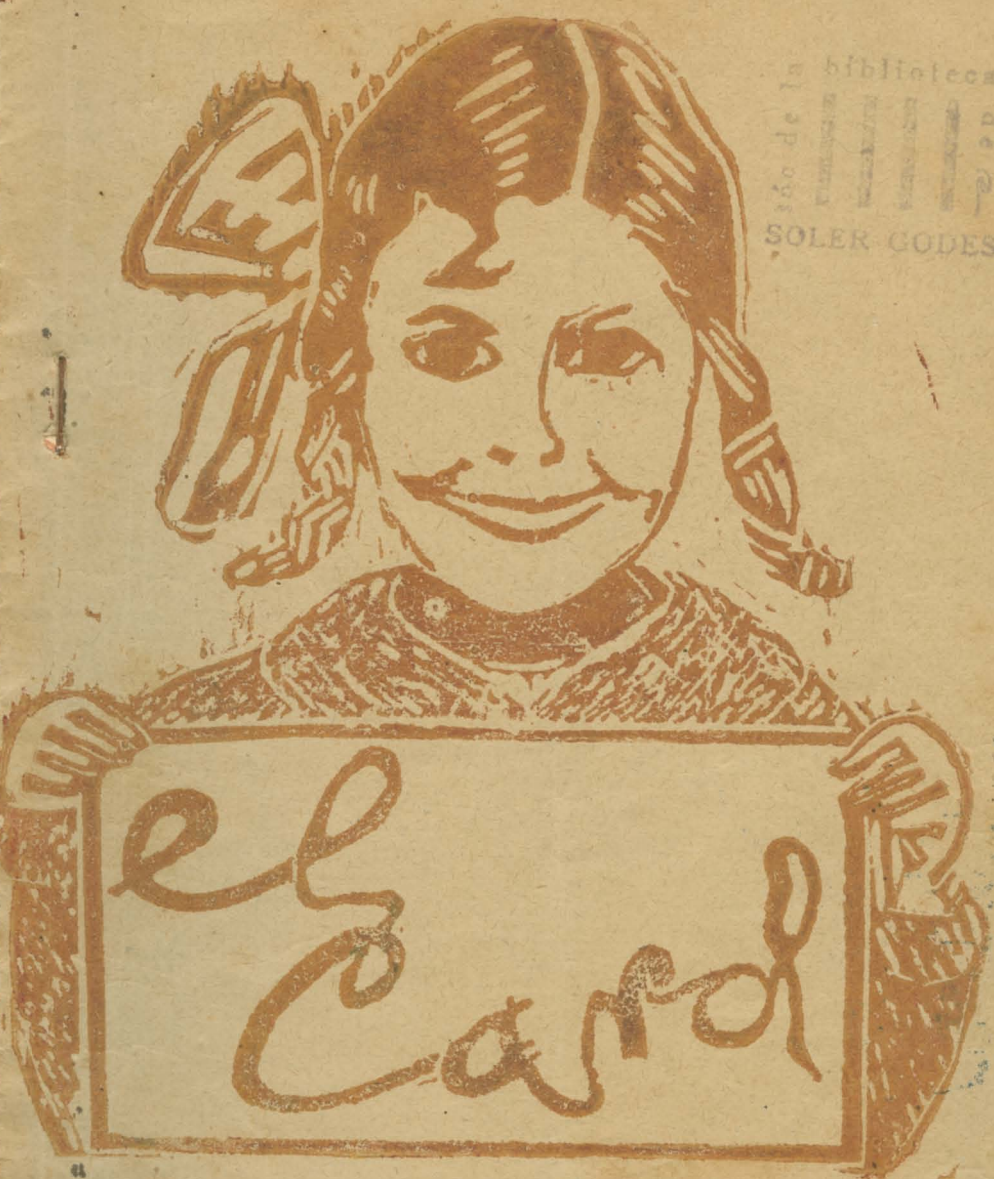 biblioteca
SOLER GODES
el
Card